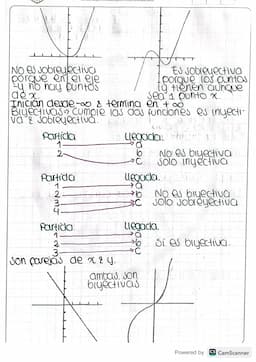 No es sobreyectiva
porque en el eje
-y no hay puntos
de x
Es sobreyectiva
porque los puntos
y tienen aunque
sea 1 punto x
Inician desde -∞ & termina en +∞
Biyectivas → cumple las dos funciones es inyecti-
va & sobreyectiva.
Partida llegada
1 a
2 b
c
No es biyectiva
solo inyectiva
Partida llegada.
1 a
2 b
3 c
4
No es biyectiva
solo sobreyectiva
Partida llegada
1 a
2 b
3 c
Si es biyectiva.
son parejas de x & y.
ambas son
biyectivas
Powered by CS CamScanner